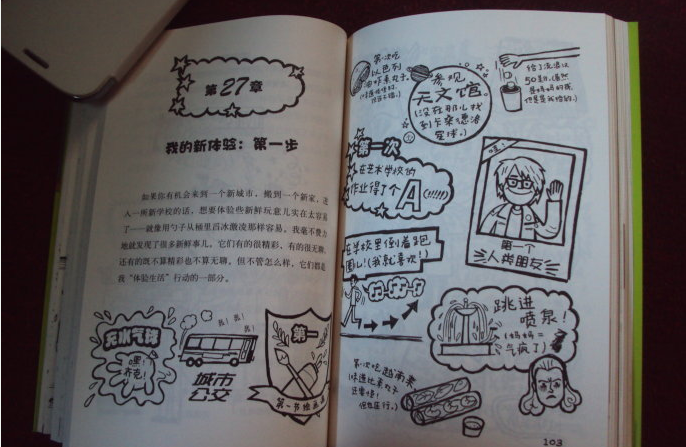 第27章
我的新体验：第一步
如果你有机会来到一个新城市，搬到一个新家，进
入一所新学校的话，想要体验些新鲜玩意儿实在太容易
了——就像用勺子从桶里舀冰激凌那样容易。我毫不费力
地就发现了很多新鲜事儿。它们有的很精彩，有的很无聊，
还有的既不算精彩也不算无聊。但不管怎么样，它们都是
我“体验生活”行动的一部分。
嘿！
城市
公交
第一
第一次吃
以色列
参观
天文馆。
(没在那儿找
到卡米德洛
星球。)
给了流浪汉
第一次
在艺术学校的
作业得了个
A(!!!!!)
在学校里倒着跑
圈儿！(我就喜欢！)
第一个
人类朋友
跳进
喷泉！
(妈妈＝
气疯了)
第一次吃越南菜
103